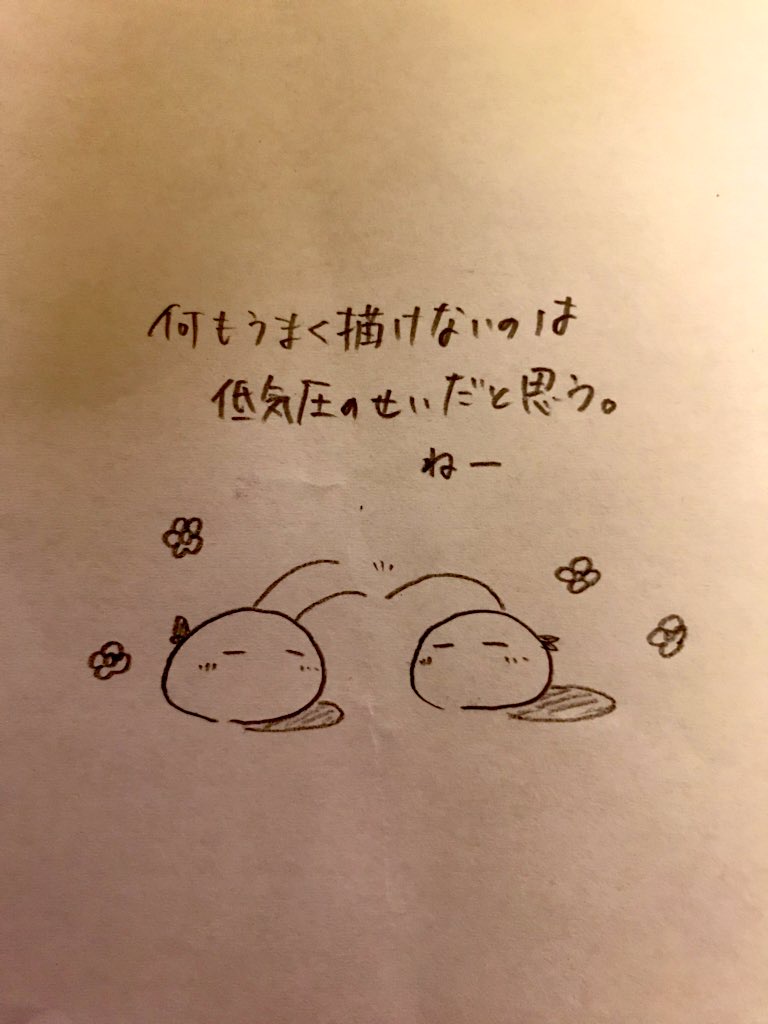 何もうまく描けないのは
低気圧のせいだと思う。
ねー